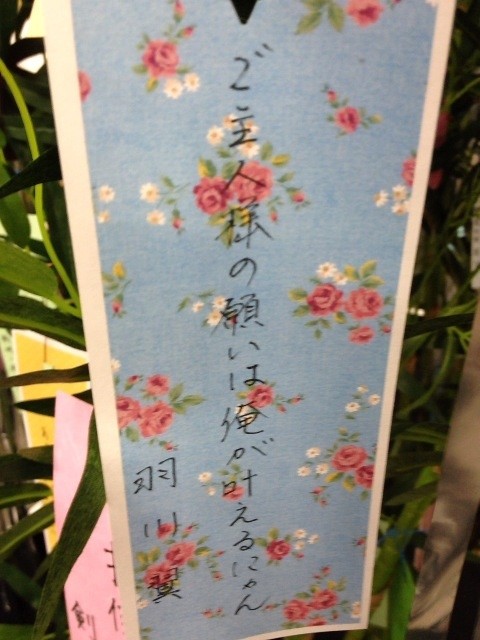 ご主人様の願いは俺が叶えるにゃん
羽川翼